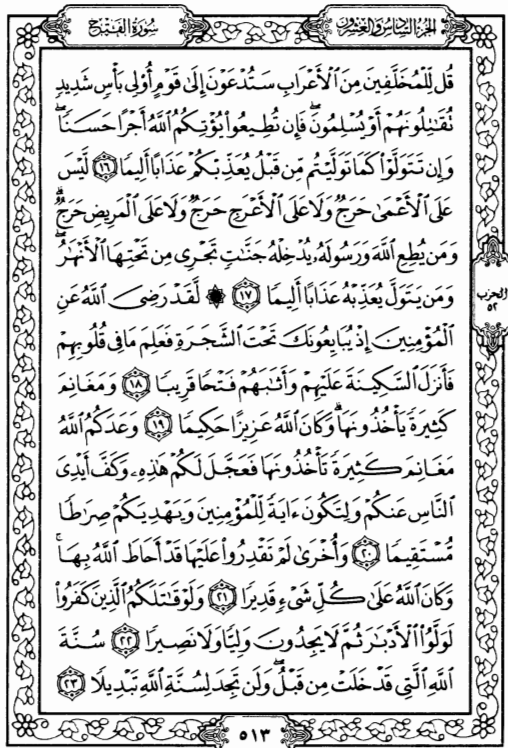 الجزء السادس والعشرون
سورة الفتح
قُل لِّلْمُخَلَّفِينَ مِنَ ٱلْأَعْرَابِ سَتُدْعَوْنَ إِلَىٰ قَوْمٍ أُوْلِى بَأْسٍ شَدِيدٍ
تُقَـٰتِلُونَهُمْ أَوْ يُسْلِمُونَ ۖ فَإِن تُطِيعُوا۟ يُؤْتِكُمُ ٱللَّهُ أَجْرًا حَسَنًا ۖ
وَإِن تَتَوَلَّوْا۟ كَمَا تَوَلَّيْتُم مِّن قَبْلُ يُعَذِّبْكُمْ عَذَابًا أَلِيمًا ١٦ لَّيْسَ
عَلَى ٱلْأَعْمَىٰ حَرَجٌ وَلَا عَلَى ٱلْأَعْرَجِ حَرَجٌ وَلَا عَلَى ٱلْمَرِيضِ حَرَجٌ ۗ
وَمَن يُطِعِ ٱللَّهَ وَرَسُولَهُۥ يُدْخِلْهُ جَنَّـٰتٍ تَجْرِى مِن تَحْتِهَا ٱلْأَنْهَـٰرُ ۖ
وَمَن يَتَوَلَّ يُعَذِّبْهُ عَذَابًا أَلِيمًا ١٧ ۞ لَّقَدْ رَضِىَ ٱللَّهُ عَنِ
ٱلْمُؤْمِنِينَ إِذْ يُبَايِعُونَكَ تَحْتَ ٱلشَّجَرَةِ فَعَلِمَ مَا فِى قُلُوبِهِمْ
فَأَنزَلَ ٱلسَّكِينَةَ عَلَيْهِمْ وَأَثَـٰبَهُمْ فَتْحًا قَرِيبًا ١٨ وَمَغَانِمَ
كَثِيرَةً يَأْخُذُونَهَا ۗ وَكَانَ ٱللَّهُ عَزِيزًا حَكِيمًا ١٩ وَعَدَكُمُ ٱللَّهُ
مَغَانِمَ كَثِيرَةً تَأْخُذُونَهَا فَعَجَّلَ لَكُمْ هَـٰذِهِۦ وَكَفَّ أَيْدِىَ
ٱلنَّاسِ عَنكُمْ وَلِتَكُونَ ءَايَةً لِّلْمُؤْمِنِينَ وَيَهْدِيَكُمْ صِرَٰطًا
مُّسْتَقِيمًا ٢٠ وَأُخْرَىٰ لَمْ تَقْدِرُوا۟ عَلَيْهَا قَدْ أَحَاطَ ٱللَّهُ بِهَا ۚ
وَكَانَ ٱللَّهُ عَلَىٰ كُلِّ شَىْءٍ قَدِيرًا ٢١ وَلَوْ قَـٰتَلَكُمُ ٱلَّذِينَ كَفَرُوا۟
لَوَلَّوُا۟ ٱلْأَدْبَـٰرَ ثُمَّ لَا يَجِدُونَ وَلِيًّا وَلَا نَصِيرًا ٢٢ سُنَّةَ
ٱللَّهِ ٱلَّتِى قَدْ خَلَتْ مِن قَبْلُ ۖ وَلَن تَجِدَ لِسُنَّةِ ٱللَّهِ تَبْدِيلًا ٢٣
الحزب
٥٢
٥١٣